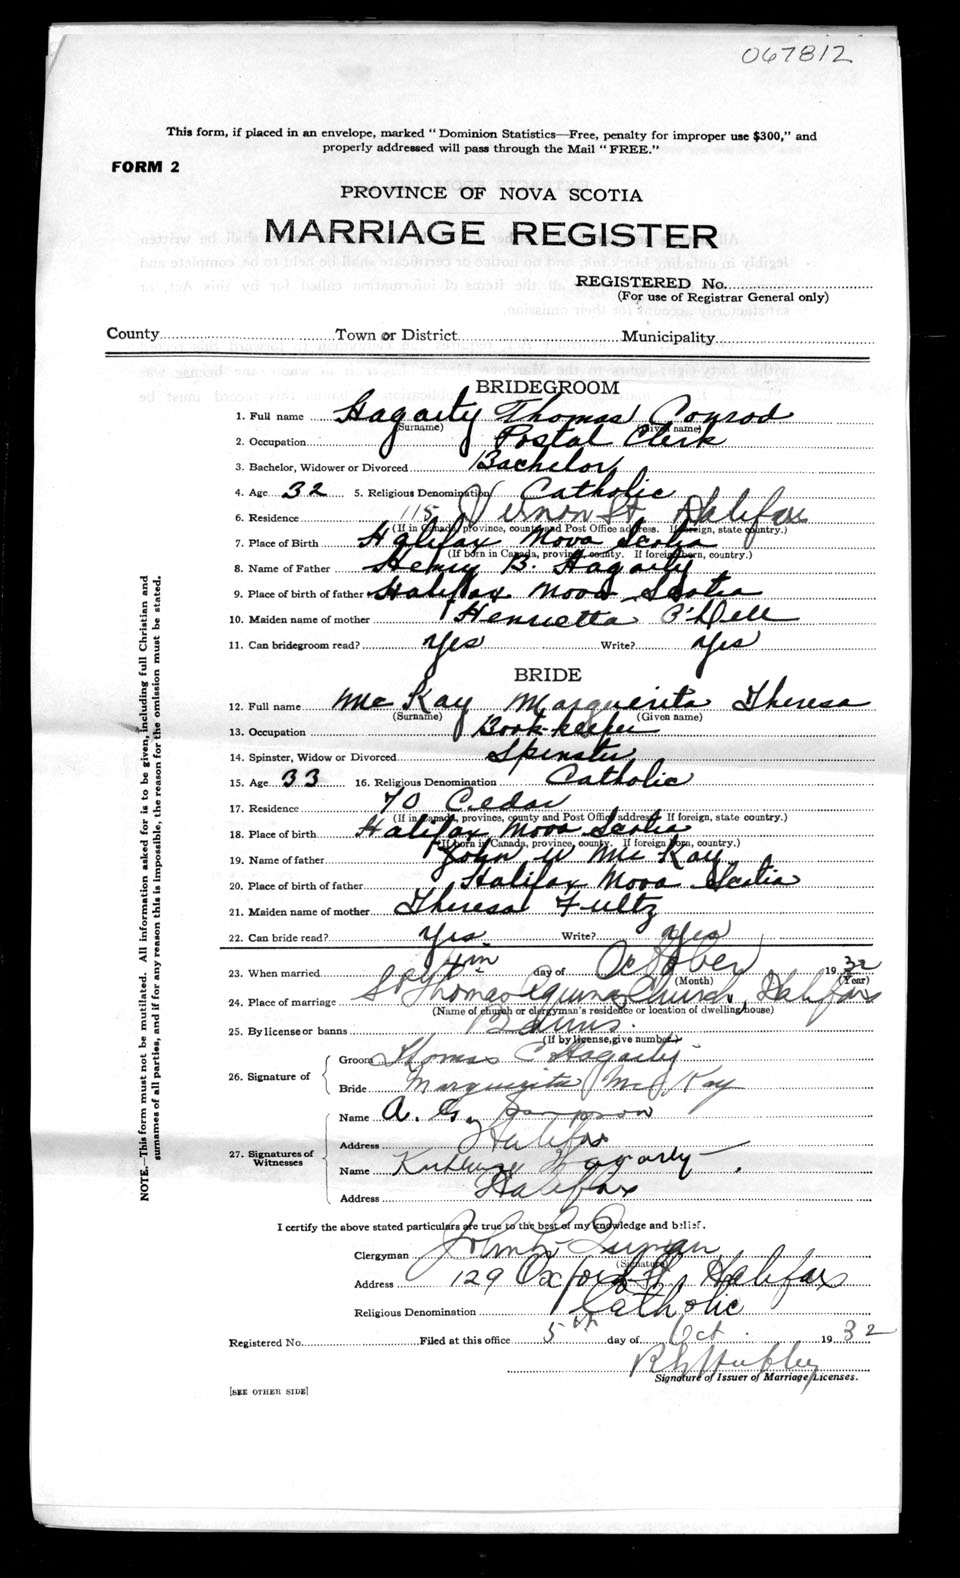 067812
This form, if placed in an envelope, marked "Dominion Statistics—Free, penalty for improper use $300," and
properly addressed will pass through the Mail "FREE."
FORM 2
PROVINCE OF NOVA SCOTIA
MARRIAGE REGISTER
REGISTERED No.
(For use of Registrar General only)
County Town or District Municipality
BRIDEGROOM
1. Full name Hagarty Thomas Conrod
(Surname) (Given name)
2. Occupation Postal Clerk
3. Bachelor, Widower or Divorced Bachelor
4. Age 32 5. Religious Denomination Catholic
6. Residence 115 Vernon St Halifax
(If in Canada, province, county and Post Office address. If foreign, state country.)
7. Place of Birth Halifax Nova Scotia
(If born in Canada, province, county. If foreign born, country.)
8. Name of Father Henry B. Hagarty
9. Place of birth of father Halifax Nova Scotia
10. Maiden name of mother Henrietta O'Dell
11. Can bridegroom read? Yes Write? Yes
BRIDE
12. Full name McKay Marguerita Theresa
(Surname) (Given name)
13. Occupation Book-keeper
14. Spinster, Widow or Divorced Spinster
15. Age 33 16. Religious Denomination Catholic
17. Residence 70 Cedar
(If in Canada, province, county and Post Office address. If foreign, state country.)
18. Place of birth Halifax Nova Scotia
(If born in Canada, province, county. If foreign born, country.)
19. Name of father John W McKay
20. Place of birth of father Halifax Nova Scotia
21. Maiden name of mother Theresa Fultz
22. Can bride read? Yes Write? Yes
23. When married 4th day of October 1932
(Month) (Year)
24. Place of marriage St Thomas Aquinas Church, Halifax
(Name of church or clergyman's residence or location of dwelling house)
25. By license or banns Banns.
(If by license, give number)
26. Signature of
Groom Thomas C Hagarty
Bride Marguerita McKay
27. Signatures of Witnesses
Name A. G. Sampson
Address Halifax
Name Hagarty
Address Halifax
I certify the above stated particulars are true to the best of my knowledge and belief.
Clergyman John
(Signature)
Address 129 Oxford St, Halifax
Religious Denomination Catholic
Registered No. Filed at this office 5th day of Oct. 1932
Signature of Issuer of Marriage Licenses.
[SEE OTHER SIDE]
NOTE.—This form must not be mutilated. All information asked for is to be given, including full Christian and
surnames of all parties, and if for any reason this is impossible, the reason for the omission must be stated.